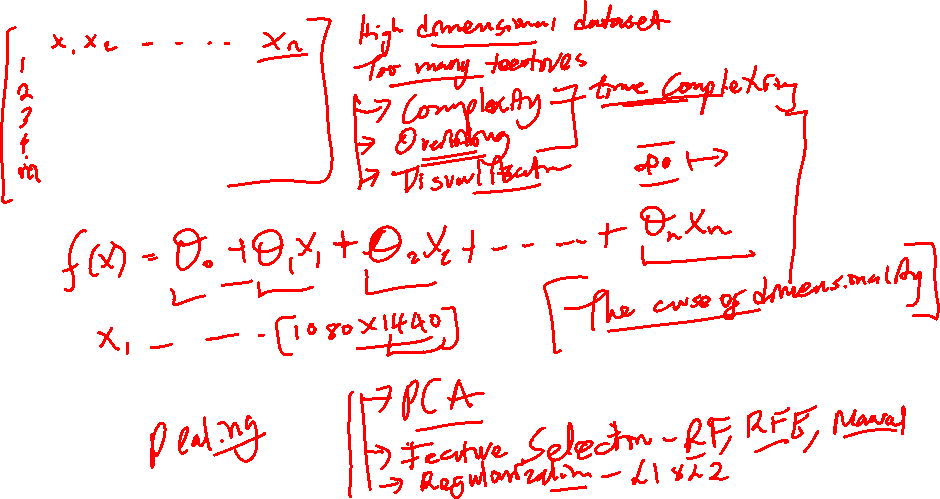 x₁ x₂ - - . . . . xₙ
1
2
3
4
m
High dimensional dataset
Too many features
→ Complexity - time Complexity
→ Overfitting
→ Visualization
f(x) = θ₀ + θ₁x₁ + θ₂x₂ + - - - - - + θₙxₙ
x₁ - - - - [1080×1440]
[The curse of dimensionality]
Dealing
→ PCA
→ Feature Selection - RF, RFE, Manual
→ Regularization - L1 & L2